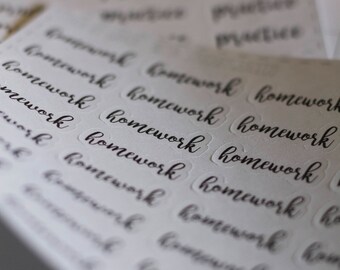 practice
practice
practice
homework homework
homework homework homework
homework homework homework
homework homework homework
homework homework homework
homework homework homework
homework homework
homework